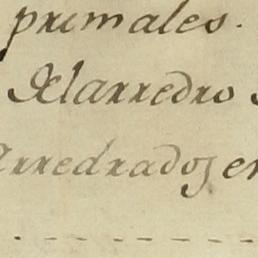 primales.
Elarredro
arredrados en